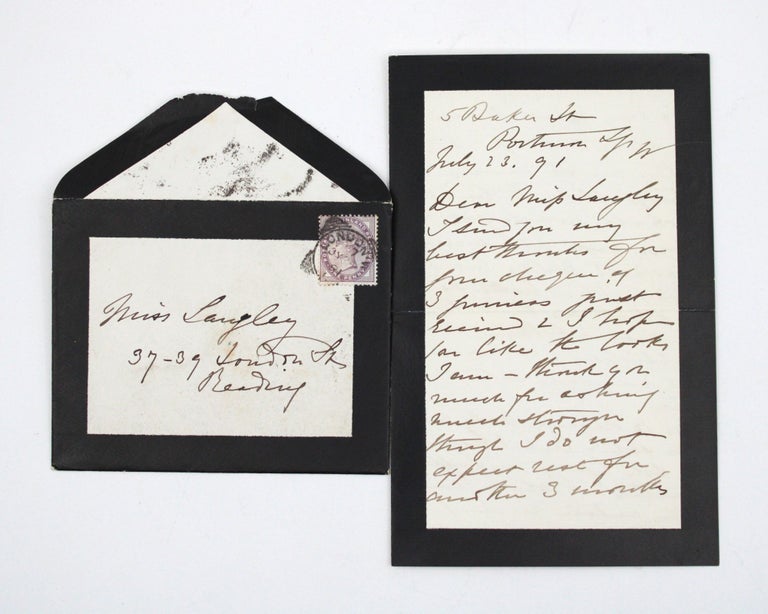 Miss Langley
37-39 London St
Reading
LONDON
5 Baker St
Portman Sq W
July 23. 91
Dear Miss Langley
I send you my
best thanks for
your cheque of
3 guineas just
received & I hope
you like the books
I am - thank you
much for asking
much stronger
though I do not
expect rest for
another 3 months